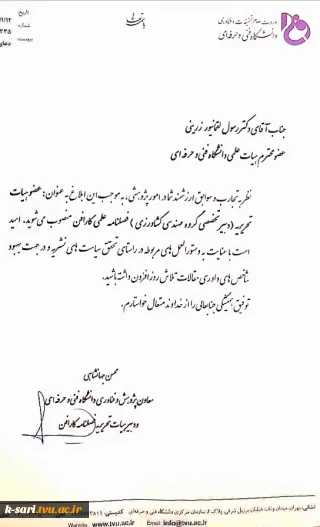 باسمه تعالی
وزارت علوم، تحقیقات و فناوری
دانشگاه فنی و حرفه ای
تاریخ
شماره
پیوست
جناب آقای دکتر رسول لقمانپور زرینی
عضو محترم هیات علمی دانشگاه فنی و حرفه ای
نظر به تجارب و سوابق ارزشمند شما در امور پژوهشی، به موجب این ابلاغ به عنوان: عضو هیات
تحریریه (دبیر تخصصی گروه مهندسی کشاورزی) فصلنامه علمی کارافن منصوب می شوید. امید
است با عنایت به دستورالعمل های مربوطه در راستای تحقق سیاست های نشریه و در جهت بهبود
شاخص های داوری مقالات تلاش روزافزون داشته باشید.
توفیق همیشگی جنابعالی را از خداوند متعال خواستارم.
محسن جهانشاهی
معاون پژوهش و فناوری دانشگاه فنی و حرفه ای
و دبیر هیات تحریریه فصلنامه کارافن
نشانی: تهران، میدان ونک، خیابان برزیل شرقی، پلاک ۴ سازمان مرکزی دانشگاه فنی و حرفه‌ای کدپستی:
Website: www.tvu.ac.ir Email: info@tvu.ac.ir
k-sari.tvu.ac.ir